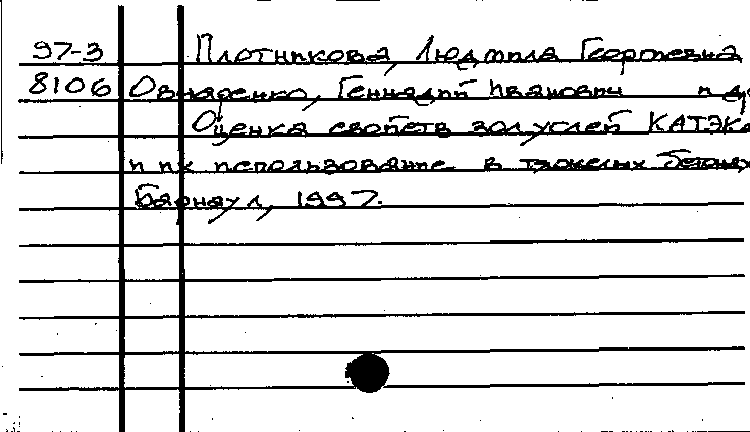 97-3 Плотникова, Людмила Георгиевна
8106 Овчаренко, Геннадий Иванович и др.
Оценка свойств зол углей КАТЭКа
и их использование в тяжелых бетонах
Барнаул, 1997.